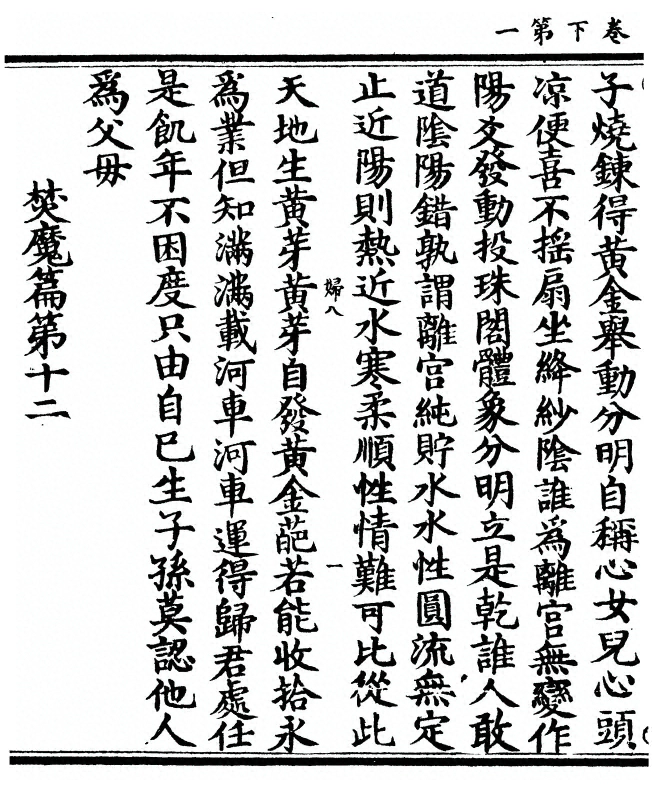 卷下第一
子燒鍊得黃金舉動分明自稱心女兒心頭
凉便喜不揺扇坐絳紗陰誰爲離宮無變作
陽爻發動投珠閣體象分明立是乾誰人敢
道陰陽錯孰謂離宮純貯水水性圓流無定
止近陽則熱近水寒柔順性情難可比從此
歸八 一
天地生黃芽黃芽自發黃金葩若能收拾永
爲業但知滿滿載河車河車運得歸君處任
是飢年不困度只由自巳生子孫莫認他人
爲父母
焚魔篇第十二